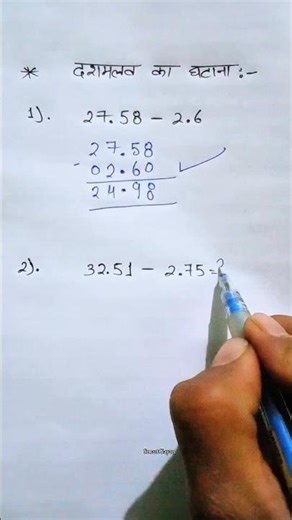 * दशमलव का घटाना :-
1). 27.58 - 2.6
27.58
- 02.60
24.98
2). 32.51 - 2.75 = ?